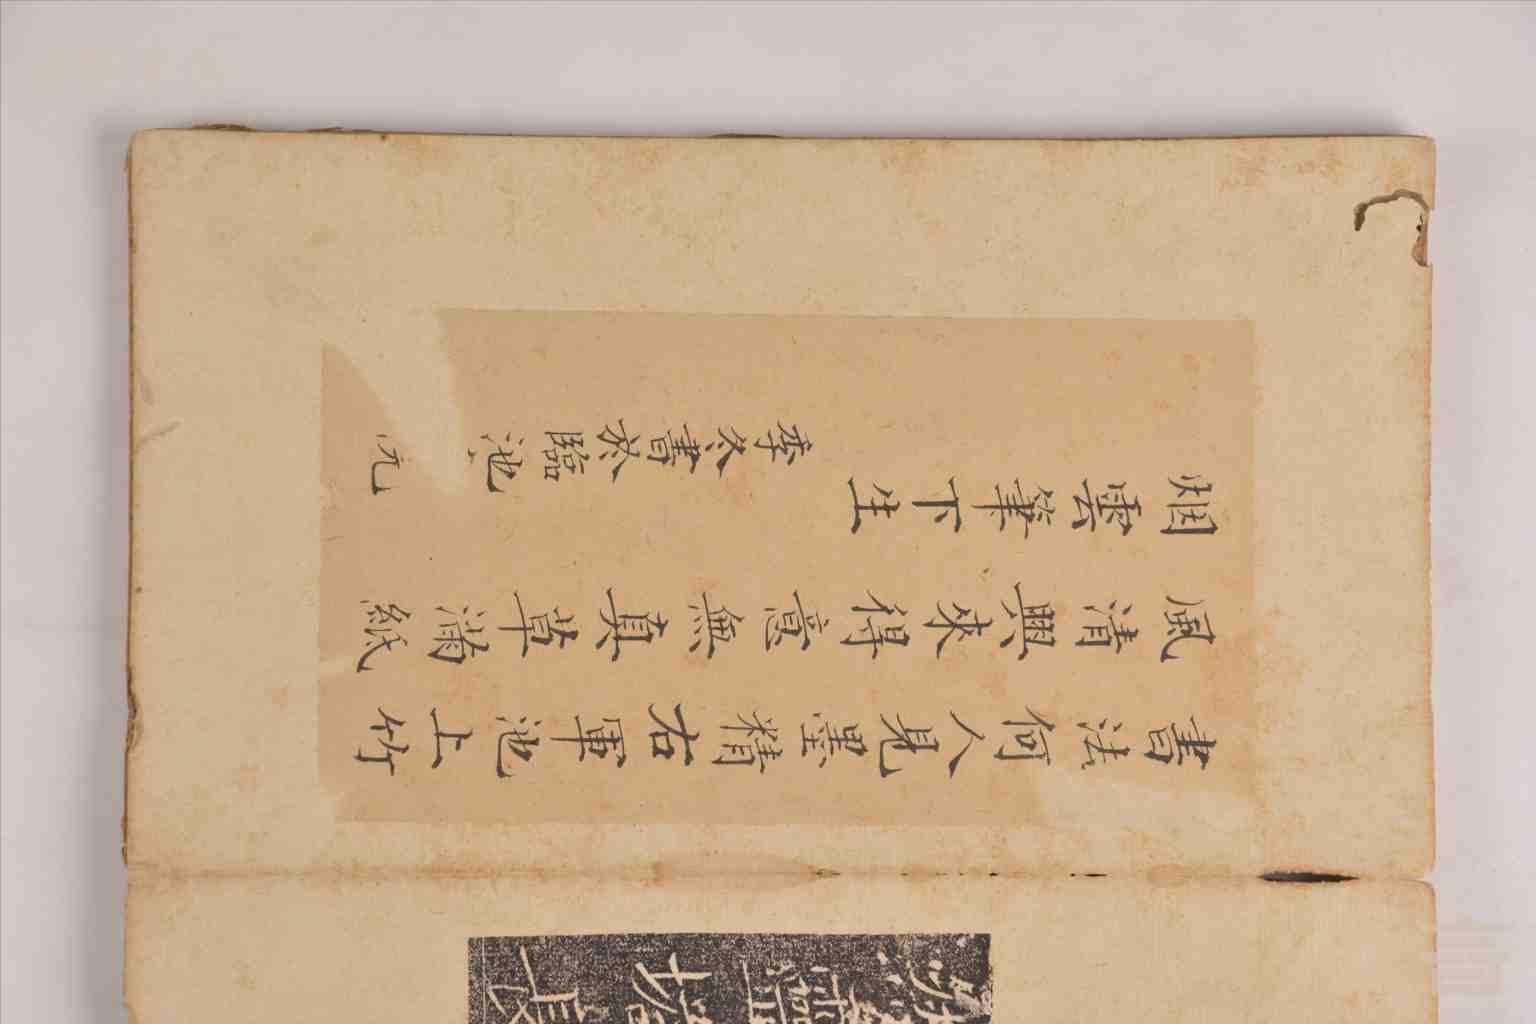 書法何人見墨精右軍池上竹
風清興來得意無真草滿紙
烟雲筆下生
季冬書於臨池 元